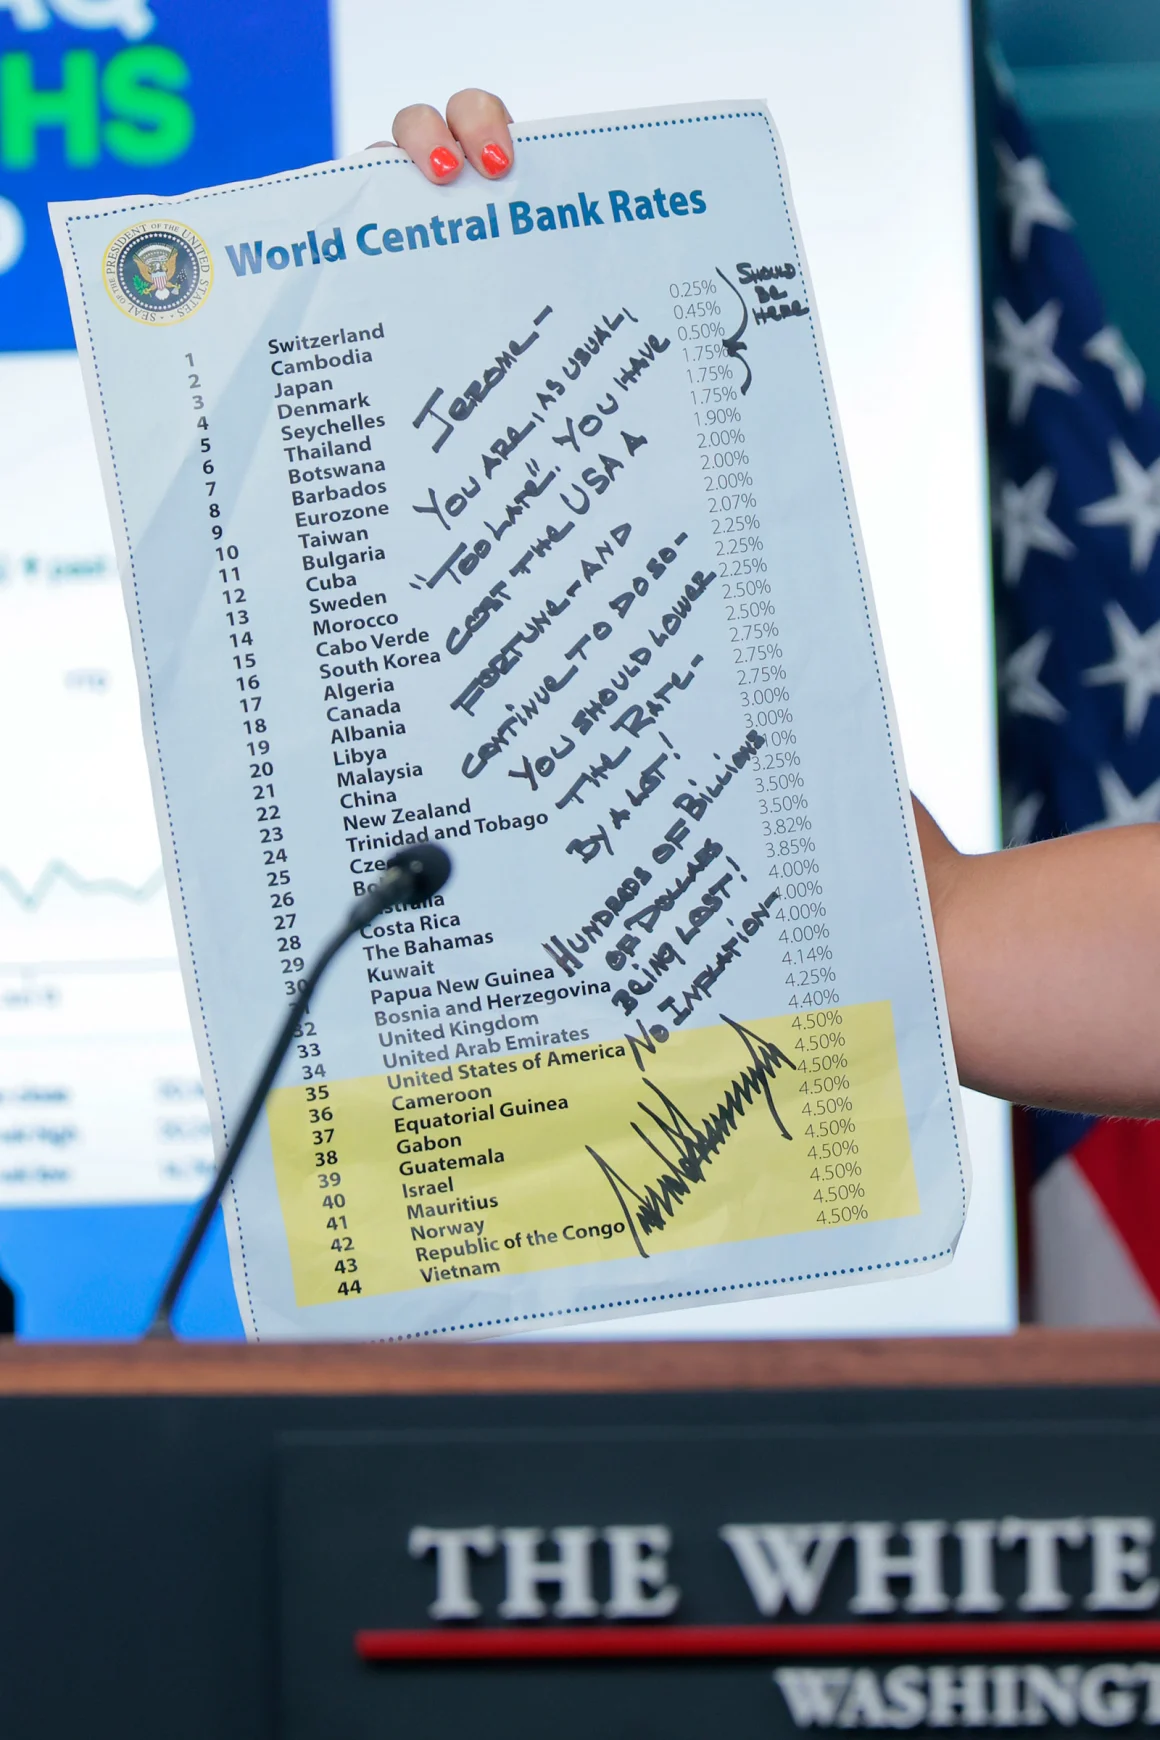 HS
SEAL OF THE PRESIDENT OF THE UNITED STATES
World Central Bank Rates
1 Switzerland 0.25%
2 Cambodia 0.45%
3 Japan 0.50%
4 Denmark 1.75%
5 Seychelles 1.75%
6 Thailand 1.75%
7 Botswana 1.90%
8 Barbados 2.00%
9 Eurozone 2.00%
10 Taiwan 2.00%
11 Bulgaria 2.07%
12 Cuba 2.25%
13 Sweden 2.25%
14 Morocco 2.25%
15 Cabo Verde 2.50%
16 South Korea 2.50%
17 Algeria 2.75%
18 Canada 2.75%
19 Albania 2.75%
20 Libya 3.00%
21 Malaysia 3.00%
22 China 10%
23 New Zealand 3.25%
24 Trinidad and Tobago 3.50%
25 3.50%
26 3.82%
27 Australia 3.85%
28 Costa Rica 4.00%
29 The Bahamas 4.00%
30 Kuwait 4.00%
Papua New Guinea 4.00%
32 Bosnia and Herzegovina 4.14%
33 United Kingdom 4.25%
34 United Arab Emirates 4.40%
35 United States of America 4.50%
36 Cameroon 4.50%
37 Equatorial Guinea 4.50%
38 Gabon 4.50%
39 Guatemala 4.50%
40 Israel 4.50%
41 Mauritius 4.50%
42 Norway 4.50%
43 Republic of the Congo 4.50%
44 Vietnam 4.50%
SHOULD
BE
HERE
JEROME-
YOU ARE, AS USUAL,
"TOO LATE". YOU HAVE
COST THE USA A
FORTUNE-AND
CONTINUE TO DO SO-
YOU SHOULD LOWER
THE RATE-
BY A LOT!
HUNDREDS OF BILLIONS
OF DOLLARS
BEING LOST!
NO INFLATION-
THE WHITE
WASHINGT